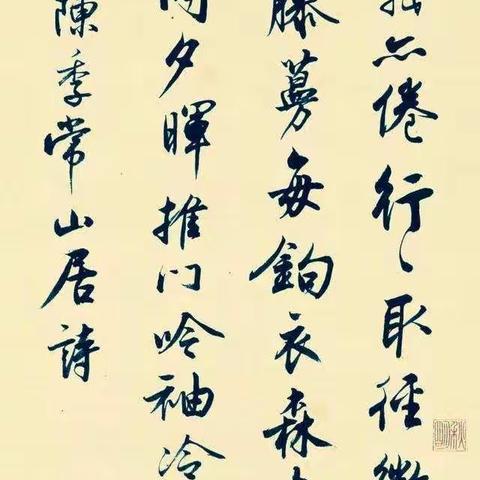 亦倦行〻取徑微
藤蔓每鉤衣森
夕暉推门吟袖冷
陳季常山居詩